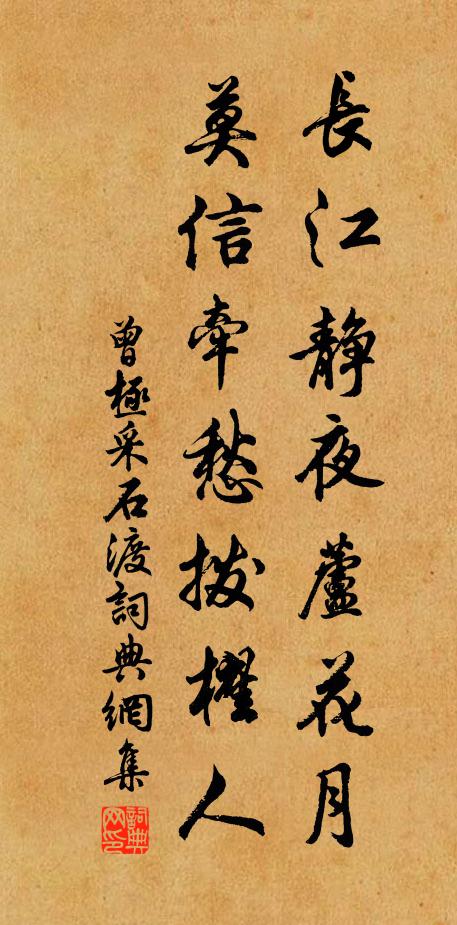 長江靜夜蘆花月
莫信牽愁撥櫂人
曾極采石渡詞典網集
詞典网印